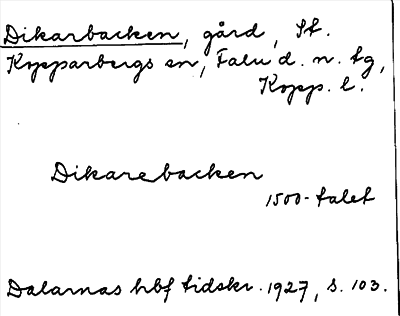 Dikarbacken, gård, St.
Kopparbergs sn, Falu d. n. tg,
Kopp. l.
Dikarebacken
1500-talet
Dalarnas hbf tidskr. 1927, s. 103.